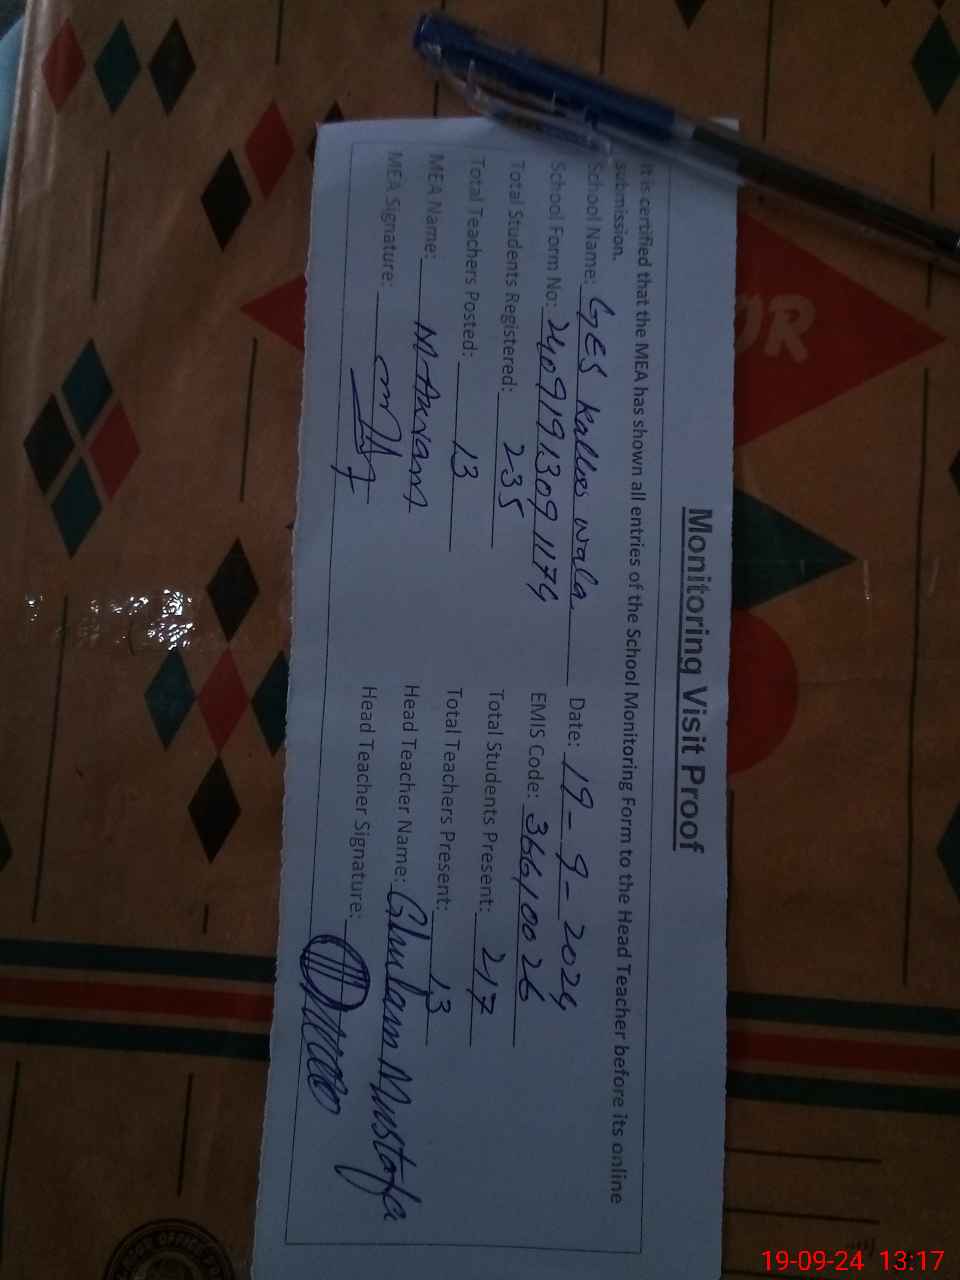 Monitoring Visit Proof
It is certified that the MEA has shown all entries of the School Monitoring Form to the Head Teacher before its online
submission.
School Name: GES Kalloo wala Date: 19-9-2024
School Form No: 2409191309 1174 EMIS Code: 36610026
Total Students Registered: 235 Total Students Present: 217
Total Teachers Posted: 13 Total Teachers Present: 13
MEA Name: M. Akram Head Teacher Name: Ghulam Mustafa
MEA Signature: Head Teacher Signature:
OR
19-09-24 13:17